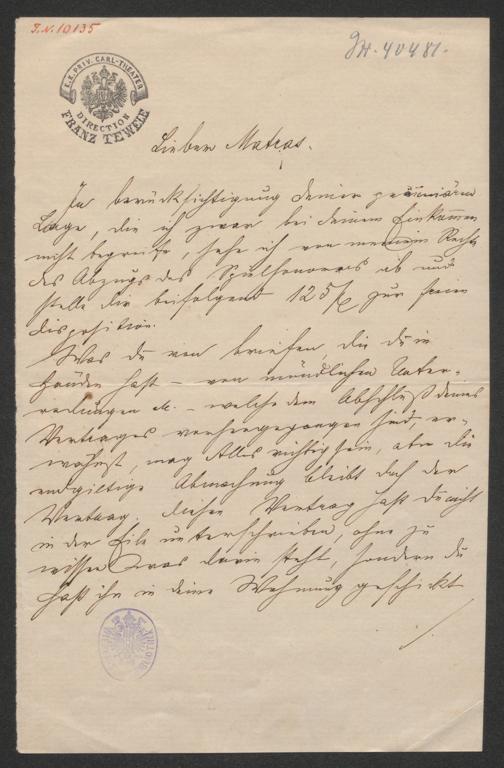 I.N. 10135
IH. 40481.
K.K. PRIV. CARL-THEATER
DIRECTION
FRANZ TEWELE
Lieber Matras.
In berücksichtigung deiner pecuniären
Lage, die ich zwar bei deinem Einkommen
nicht begreife, sehe ich von meinem Rechte
des Abzugs des Spielhonorars ab und
stelle die beifolgend 125 f zur freien
disposition.
Was du von briefen, die du in
Händen hast – von mündlichen Unter-
redungen – welche dem Abschluß deines
Vertrages vorhergegangen sind, er-
wähnst, mag Alles richtig sein, aber die
endgiltige Abmachung bleibt doch der
Vertrag. diesen Vertrag hast du nicht
in der Eile unterschrieben, ohne zu
wissen was darin steht, sondern du
hast ihn in deine Wohnung geschickt